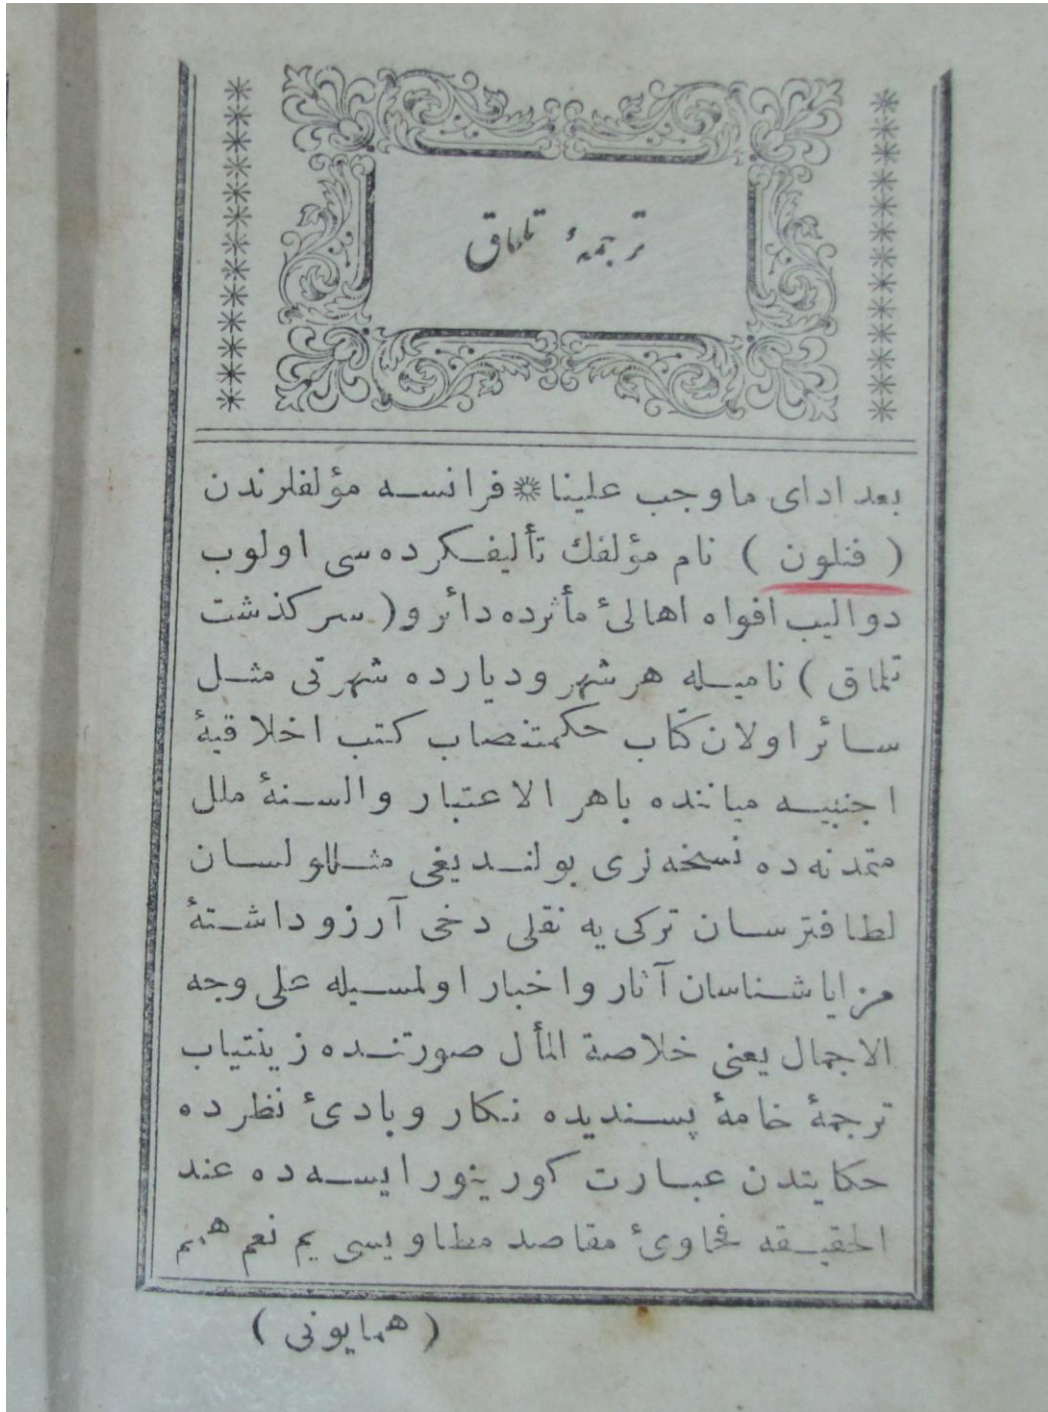 ترجمهٔ تلماق
بعد ادای ماوجب علینا فرانسه مؤلفلرندن
( فنلون ) نام مؤلفك تألیفکرده سی اولوب
دوالیب افواه اهالیٔ مأثرده دائر و( سرکذشت
تلماق ) نامیله هر شهر ودیارده شهرتی مثل
سائر اولان کتاب حکمتنصاب کتب اخلاقیهٔ
اجنبیه میاننده باهر الاعتبار والسنهٔ ملل
متمدنه ده نسخه لری بولندیغی مثللو لسان
لطافترسان ترکی یه نقلی دخی آرزو داشتهٔ
مزایاشناسان آثار واخبار اولمسیله علی وجه
الاجمال یعنی خلاصة المأل صورتنده زینتیاب
ترجمهٔ خامهٔ پسندیده نکار وبادیٔ نظرده
حکایتدن عبارت کورینور ایسه ده عند
الحقیقه فحاویٔ مقاصد مطاویسی یم نعم هیم
( همایونی )